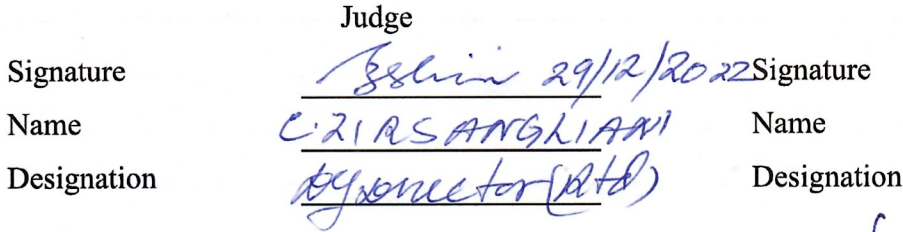 Judge
Signature 29/12/2022 Signature
Name C. ZIRSANGLIANI Name
Designation Dy Director (Rtd) Designation